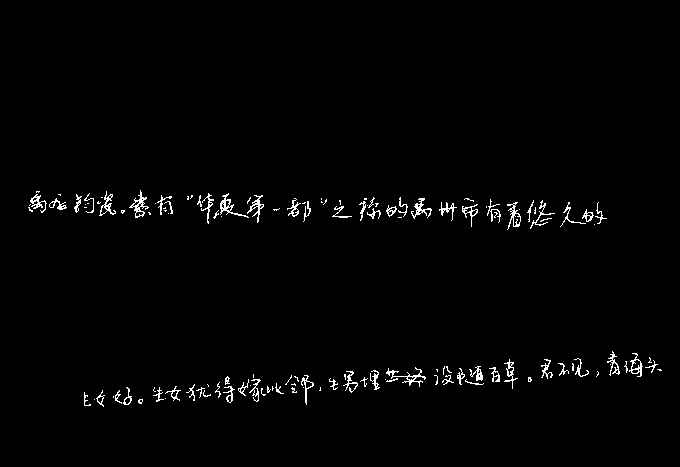 禹州钧瓷。素有"华夏第一都"之称的禹州市有着悠久的
生女好。生女犹得嫁比邻，生男埋没随百草。君不见，青海头